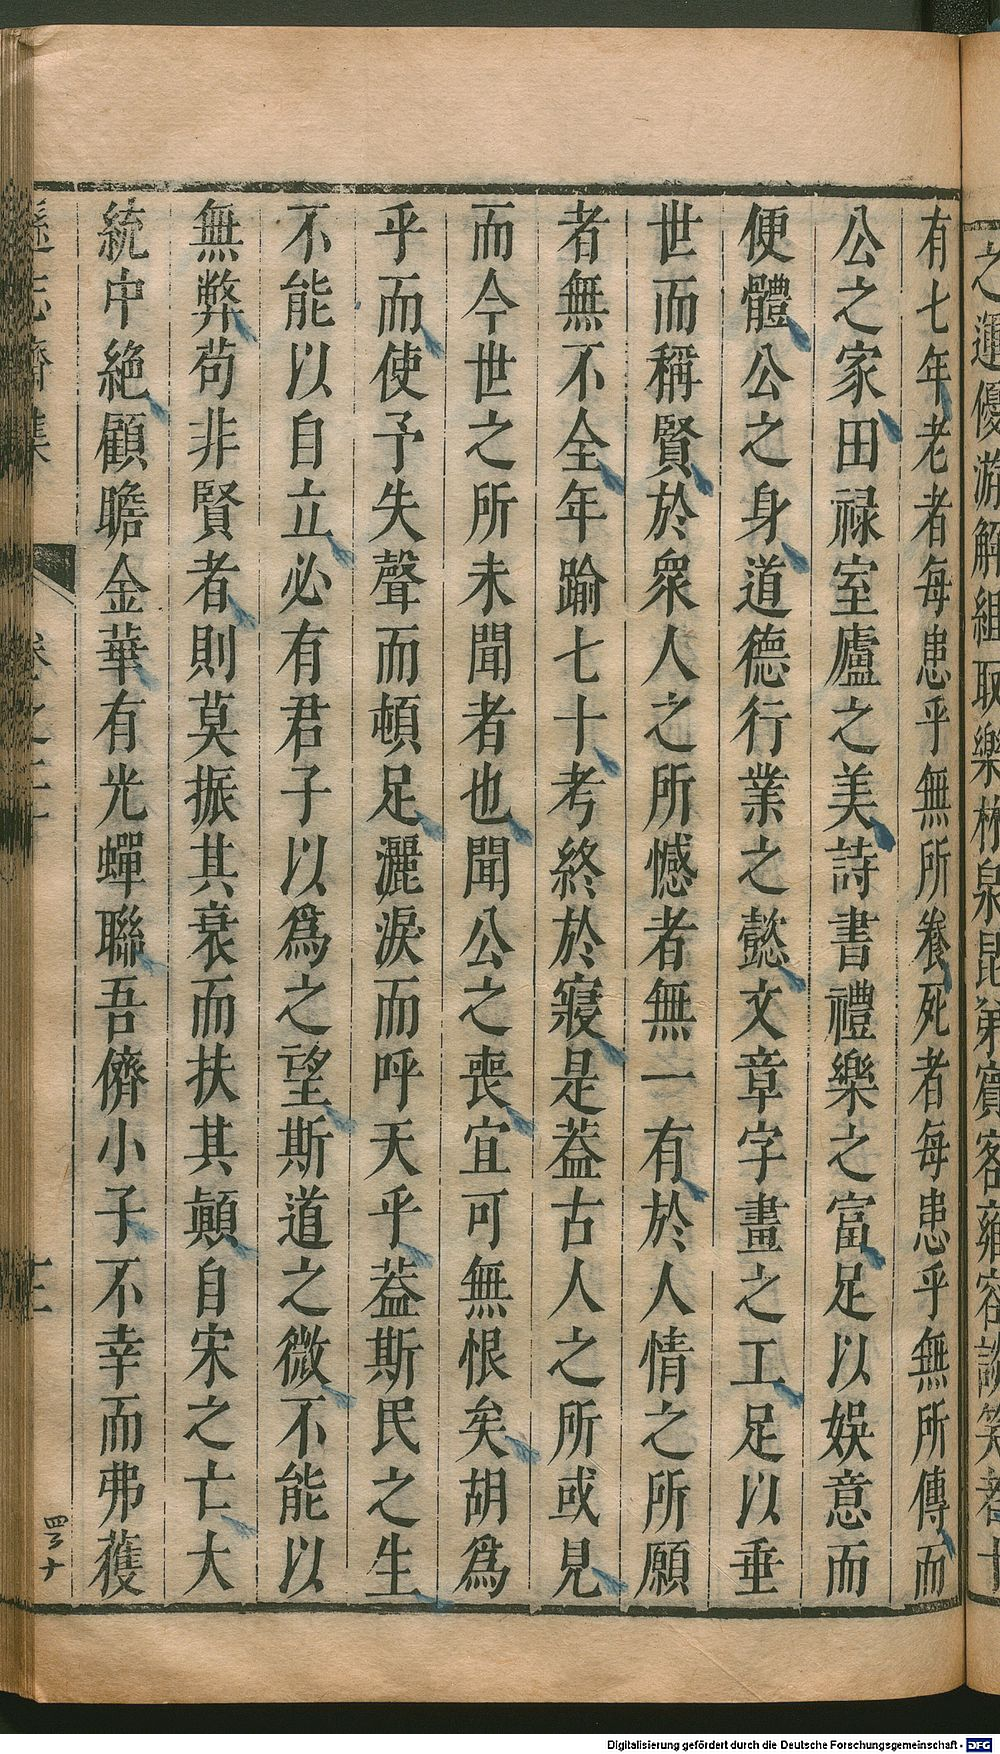 之運優游解組取樂林泉昆弟賓客雍容談笑者十
有七年老者每患乎無所養死者每患乎無所傳而
公之家田祿室廬之美詩書禮樂之富足以娛意而
便體公之身道德行業之懿文章字畫之工足以垂
世而稱賢於衆人之所憾者無一有於人情之所願
者無不全年踰七十考終於寢是蓋古人之所或見
而今世之所未聞者也聞公之喪宜可無恨矣胡爲
乎而使予失聲而頓足灑淚而呼天乎蓋斯民之生
不能以自立必有君子以爲之望斯道之微不能以
無弊苟非賢者則莫振其衰而扶其顛自宋之亡大
統中絶顧瞻金華有光蟬聯吾儕小子不幸而弗獲
遜志齋集
卷之二十
十三
Digitalisierung gefördert durch die Deutsche Forschungsgemeinschaft - DFG